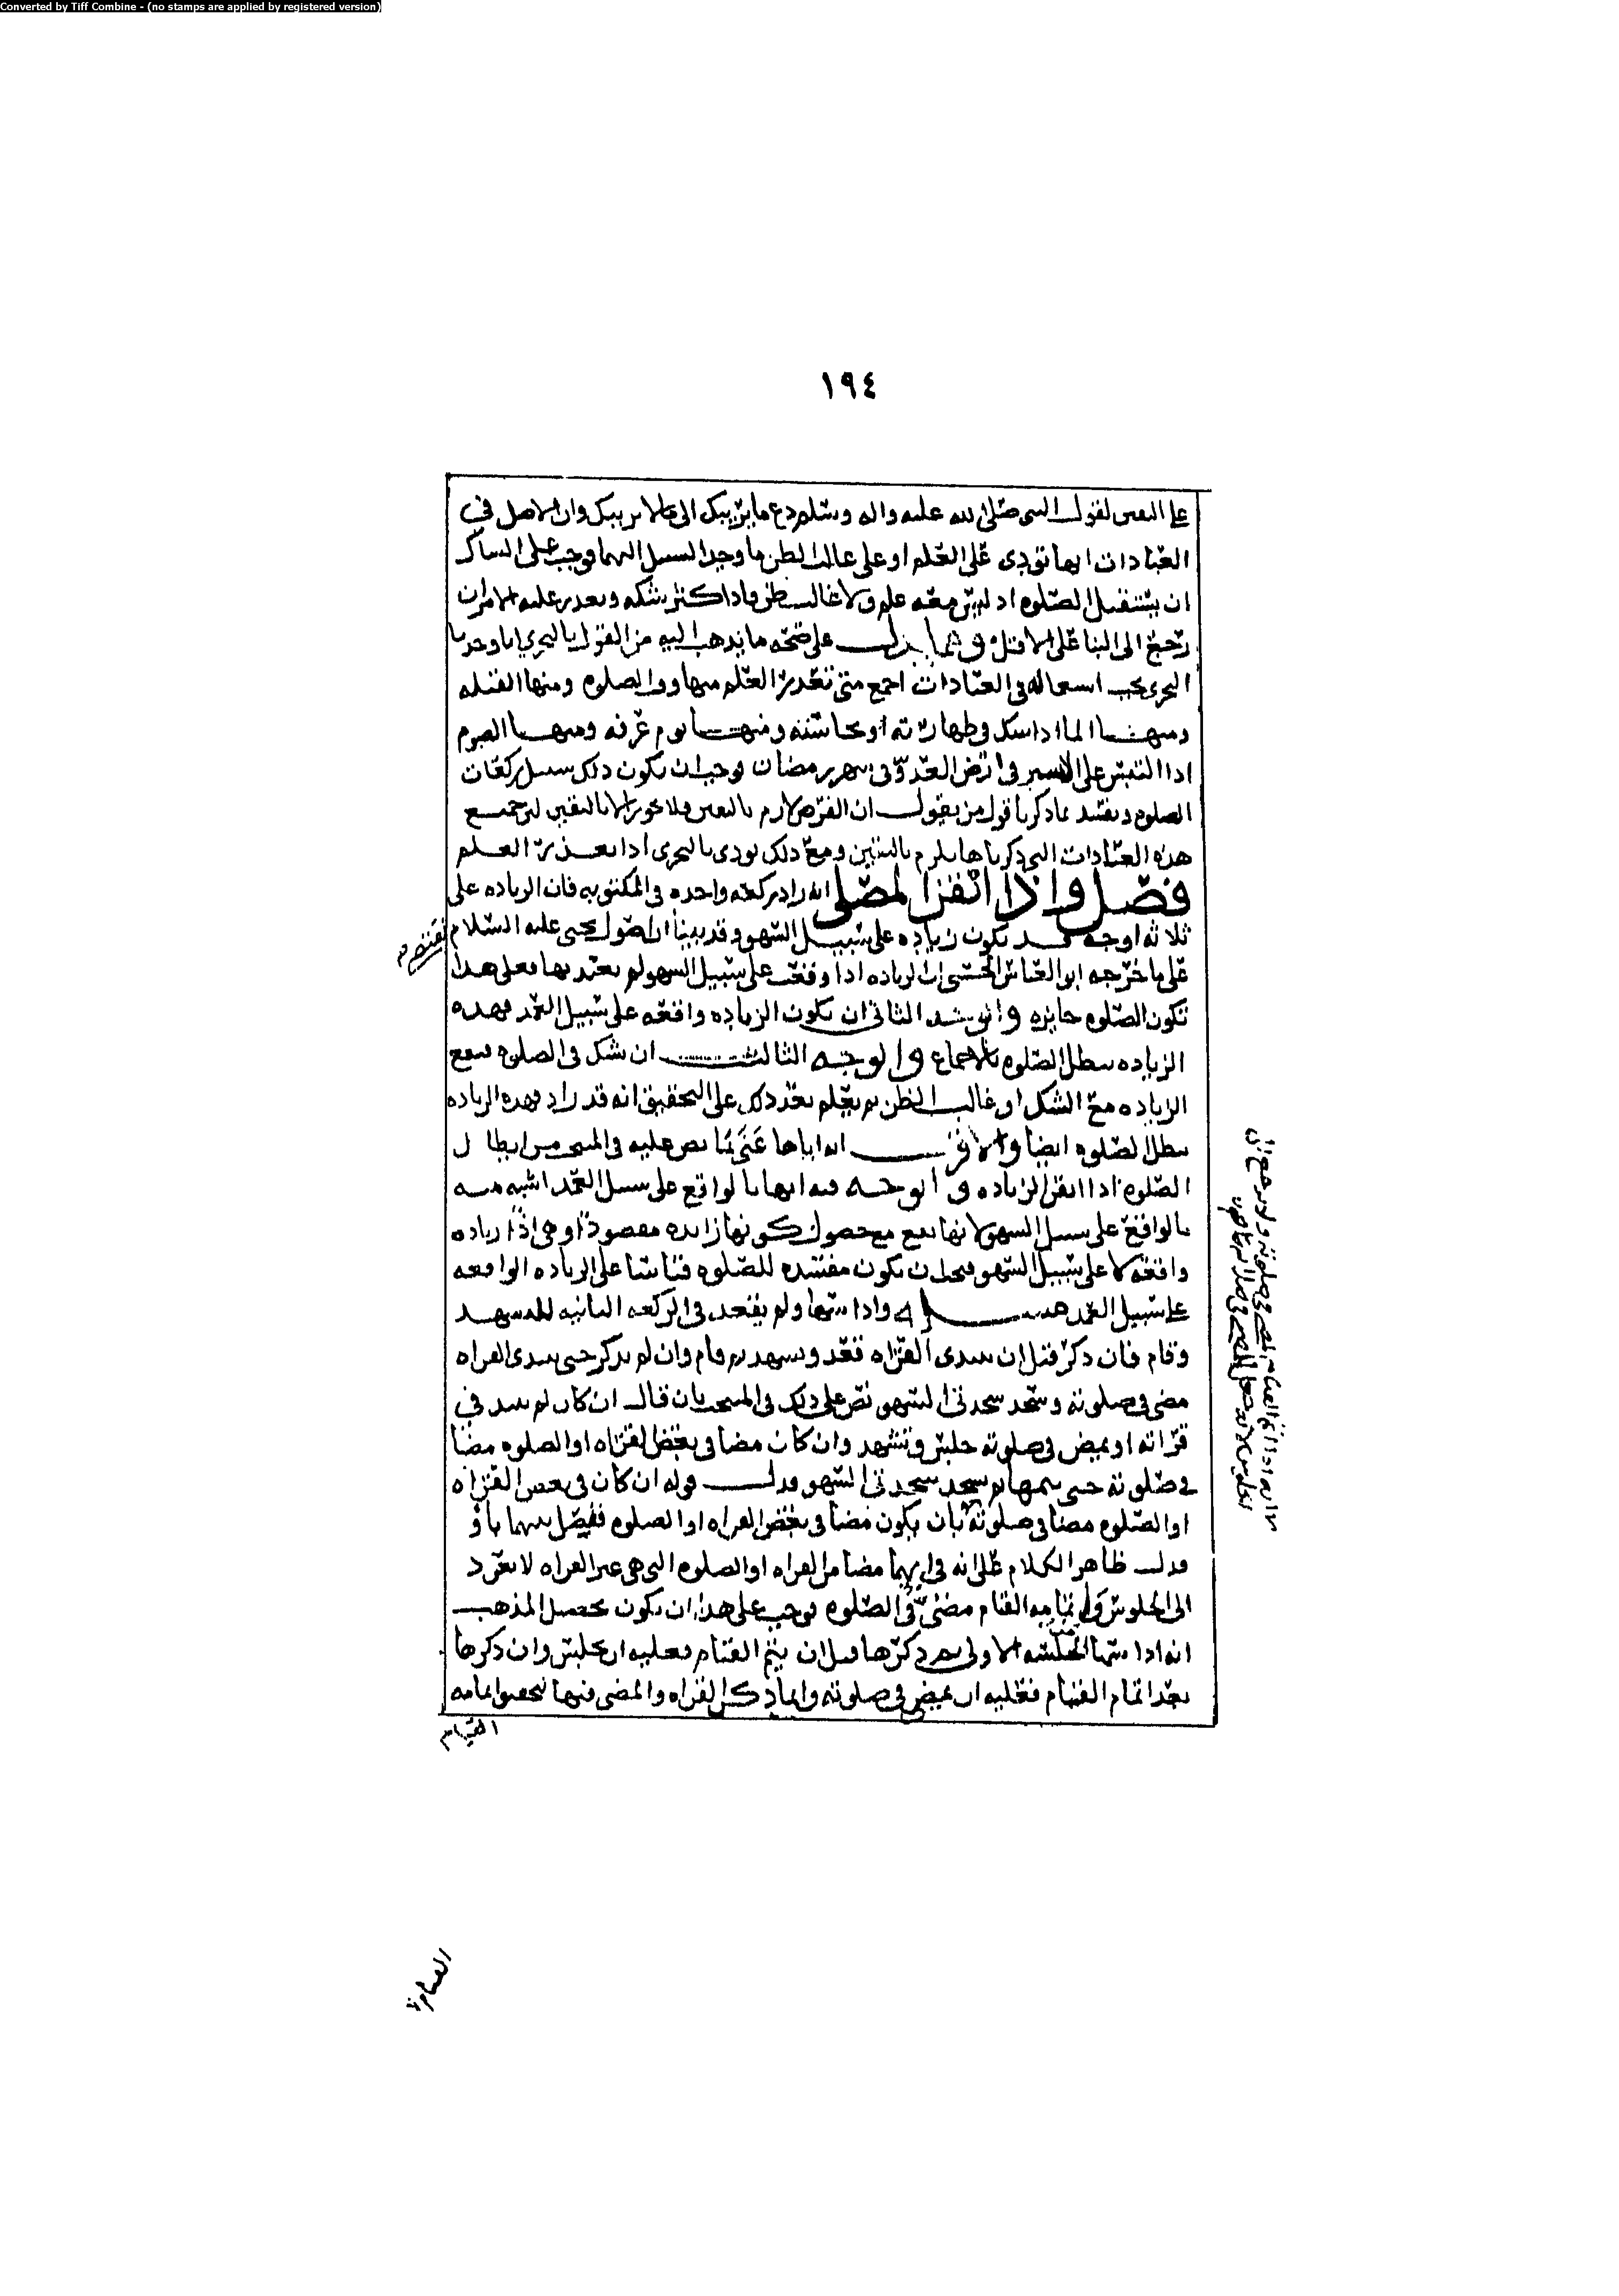 Converted by Tiff Combine - (no stamps are applied by registered version)
١٩٤
على اليقين لقول النبي صلى الله عليه واله وسلم دع ما يريبك الى ما لا يريبك وان الاصل في
العبادات انها تودى على العلم او على غالب الظن ما وجد السبيل اليهما فوجب على الشاك
ان يستقبل الصلوه اذ ليس معه علم ولا غالب ظن فاذا كثر شكه وتعذر عليه الامران
رجع الى البنا على الاقل ومما يدل على صحه ما يذهب اليه من القول بالتحري انا وجدنا
التحري يجب استعماله في العبادات اجمع متى تعذر العلم منها الصلوه ومنها القبله
ومنها الما اذا شك في طهارته او نجاسته ومنها يوم عرفه ومنها الصوم
اذا التبس على الاسير في ارض العدو في شهر رمضان فوجب ان يكون ذلك سبيل ركعات
الصلوه ويفسد بما ذكرنا قول من يقول ان الفرض لازم باليقين فلا يجوز الا باليقين لان جميع
هذه العبادات التي ذكرناها يلزم باليقين ومع ذلك يودى بالتحري اذا تعذر العلم
فصل واذا ايقن المصلي انه زاد ركعه واحده في المكتوبه فان الزياده على
ثلاثه اوجه قد تكون زياده على سبيل السهو وقد بينا ان اصول يحيى عليه السلام تقتضي
على ما خرجه ابو العباس الحسني ان الزياده اذا وقعت على سبيل السهو لم يعتد بها فعلى هذا
تكون الصلوه جايزه والوجه الثاني ان يكون الزياده واقعه على سبيل العمد فهذه
الزياده تبطل الصلوه بالاجماع والوجه الثالث ان يشك في الصلوه فتقع
الزياده مع الشك او غالب الظن ثم يعلم بعد ذلك على التحقيق انه قد زاد فهذه الزياده
تبطل الصلوه ايضا والاقرب انه اياها عنى بما نص عليه في المنتخب من ابطال
الصلوه اذا ايقن الزياده والوجه فيه انها بالواقع على سبيل العمد اشبه منه
بالواقع على سبيل السهو لانها تقع مع حصول كونها زايده مقصودا وهي اذا زياده
واقعه لا على سبيل السهو فيجب ان يكون مفسده للصلوه قياسا على الزياده الواقعه
على سبيل العمد واذا سها ولم يقعد في الركعه الثانيه للتشهد
وقام فان ذكر قبل ان يبتدى القراه قعد وتشهد ثم قام وان لم يذكر حتى يبتدى القراه
مضى في صلوته وسجد سجدتي السهو نص على ذلك في المنتخب بان قال ان كان لم يبتد في
قراته او يمض في صلوته جلس وتشهد وان كان مضا في بعض القراه او الصلوه مضا
في صلوته حتى يتمها ثم سجد سجدتي السهو فدل قوله ان كان في بعض القراه
او الصلوه مضا في صلوته بان يكون مضا في بعض القراه او الصلوه ففصل بينهما باو
فدل ظاهر الكلام على انه في ايهما مضا من القراه او الصلوه التي هي غير القراه لا يعود
الى الجلوس وفي تمامه القيام مضي في الصلوه فوجب على هذا ان يكون تحصيل المذهب
انه اذا سها الجلسه الاولى ثم ذكرها قبل ان يتم القيام فعليه ان يجلس وان ذكرها
بعد اتمام القيام فعليه ان يمضي في صلوته وانما ذكر القراه والمضي فيها تحقيقا لتمامه
القيام